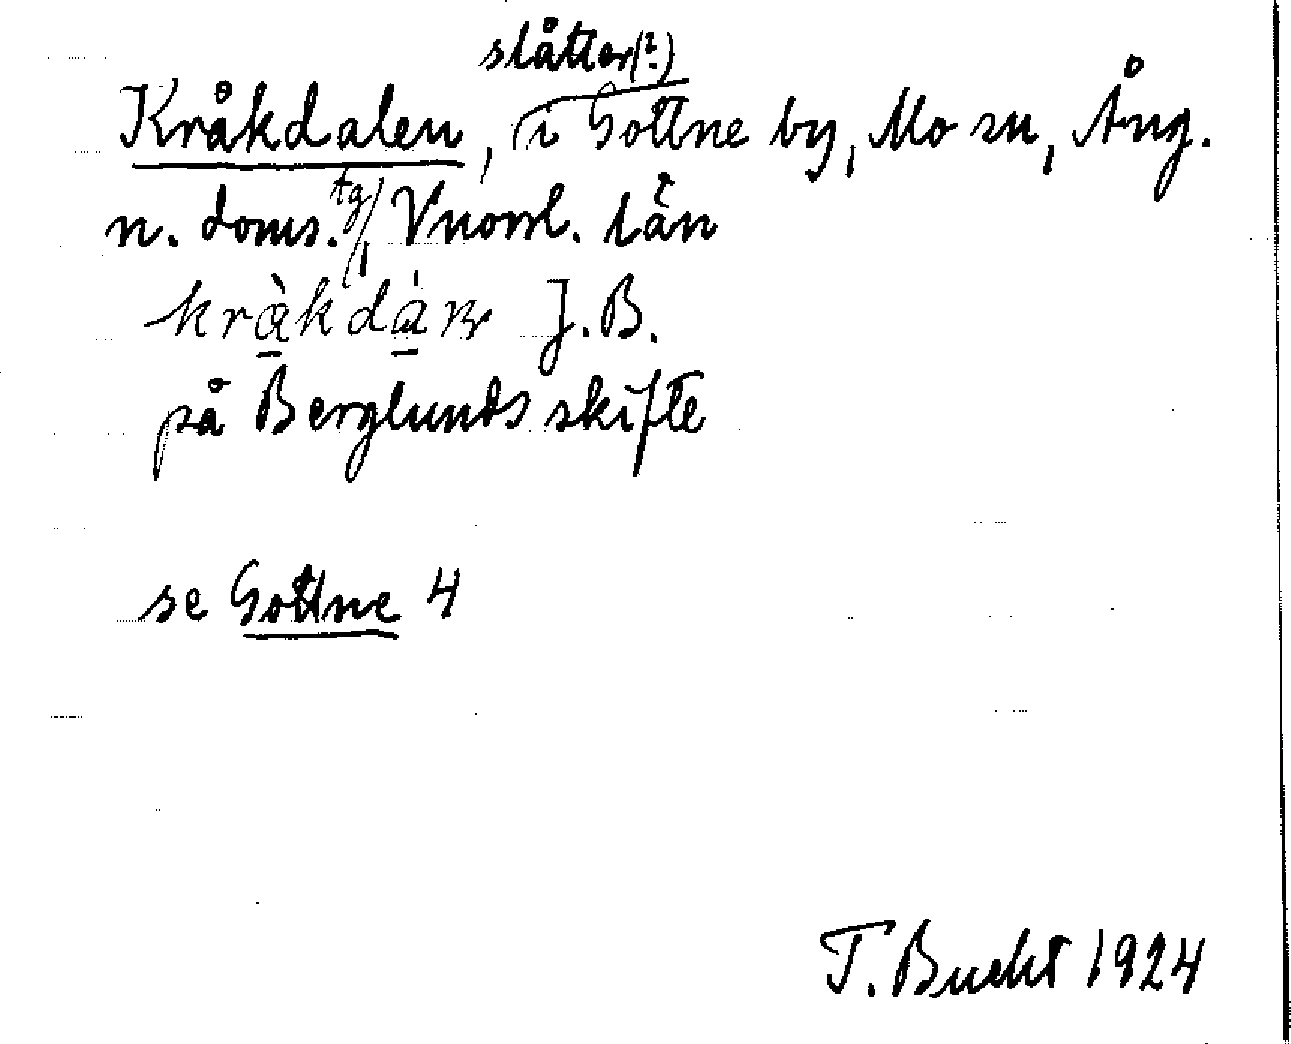 slåtter(?)
Kråkdalen, i Gottne by, Mo sn, Ång.
n. doms.tg, Vnorrl. län
J.B.
på Berglunds skifte
se Gottne 4
T. Bucht 1924